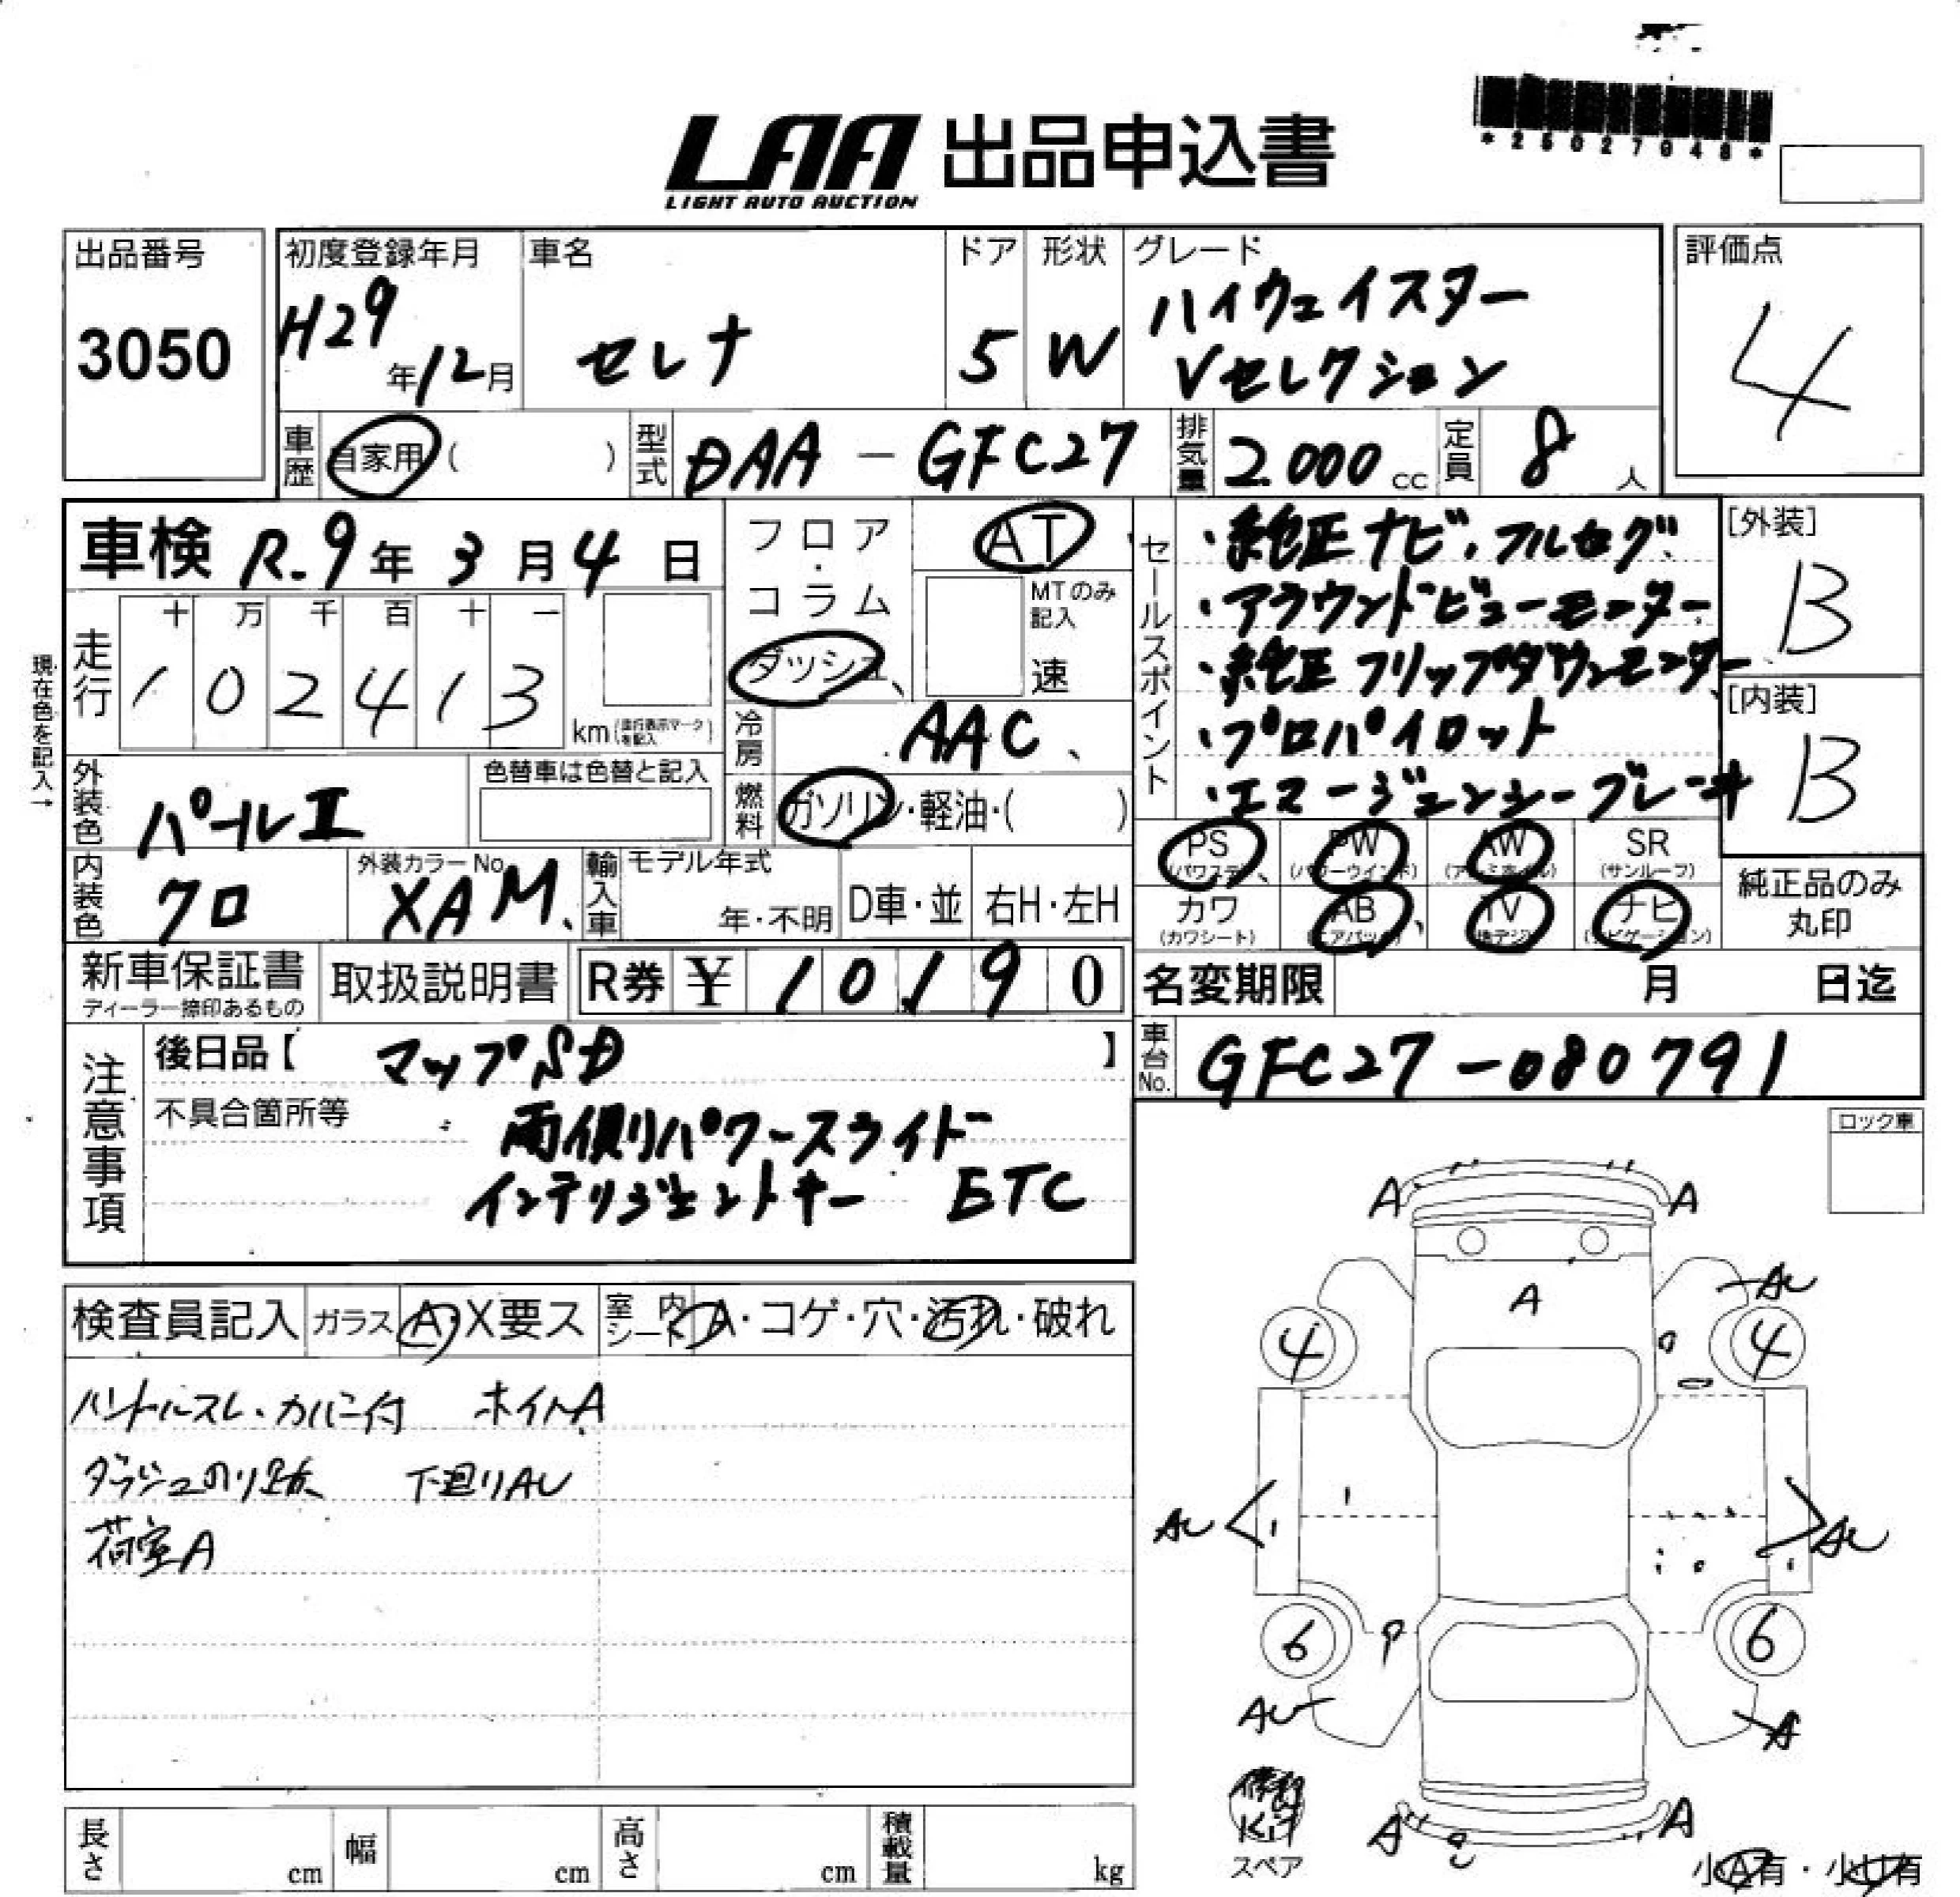 *25027048*
LAA 出品申込書
LIGHT AUTO AUCTION
出品番号
3050
初度登録年月
H29年12月
車名
セレナ
ドア
5
形状
W
グレード
ハイウェイスター
Vセレクション
評価点
4
車歴 自家用 ( )
型式 DAA-GFC27
排気量 2.000cc
定員 8人
車検 R.9年3月4日
フロア・コラム
ダッシュ
AT
MTのみ記入
速
走行
十 万 千 百 十 一
1 0 2 4 1 3
km(走行表示マークを記入)
現在色を記入→
冷房 AAC
外装色 パールII
色替車は色替と記入
燃料 ガソリン・軽油・( )
内装色 クロ
外装カラーNo. XAM
輸入車
モデル年式
年・不明
D車・並
右H・左H
新車保証書
ディーラー捺印あるもの
取扱説明書
R券 ¥ 10190
セールスポイント
・純正ナビ.フルセグ
・アラウンドビューモニター
・純正フリップダウンモニター
・プロパイロット
・エマージェンシーブレーキ
[外装]
B
[内装]
B
PS (パワステ)
PW (パワーウインド)
AW (アルミホイル)
SR (サンルーフ)
カワ (カワシート)
AB (エアバック)
TV (地デジ)
ナビ (ナビゲーション)
純正品のみ
丸印
名変期限 月 日迄
車台No. GFC27-080791
注意事項
後日品【 マップSD 】
不具合箇所等
両側パワースライドー
インテリジェントキー ETC
ロック車
検査員記入
ガラス A・X要ス
室内シート A・コゲ・穴・汚れ・破れ
ハンドルスレ・カバー付 ホイルA
ダッシュのり跡 下廻りAU
荷室A
A A
A AU
4 4
AU AU
6 6
AU A
A A
修理Kit
スペア
小A有・小U有
長さ cm
幅 cm
高さ cm
積載量 kg